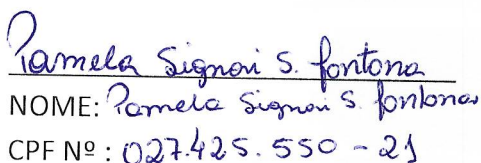 Pamela Signori S. Fontana
NOME: Pamela Signori S. Fontana
CPF Nº : 027.425.550 - 21